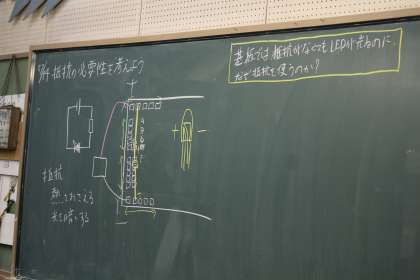 抵抗の必要性を考えよう
基板では抵抗がなくてもLEDが光るのに、
なぜ抵抗を使うのか?
+
+ −
抵抗
熱でおさえる
光で暗くする